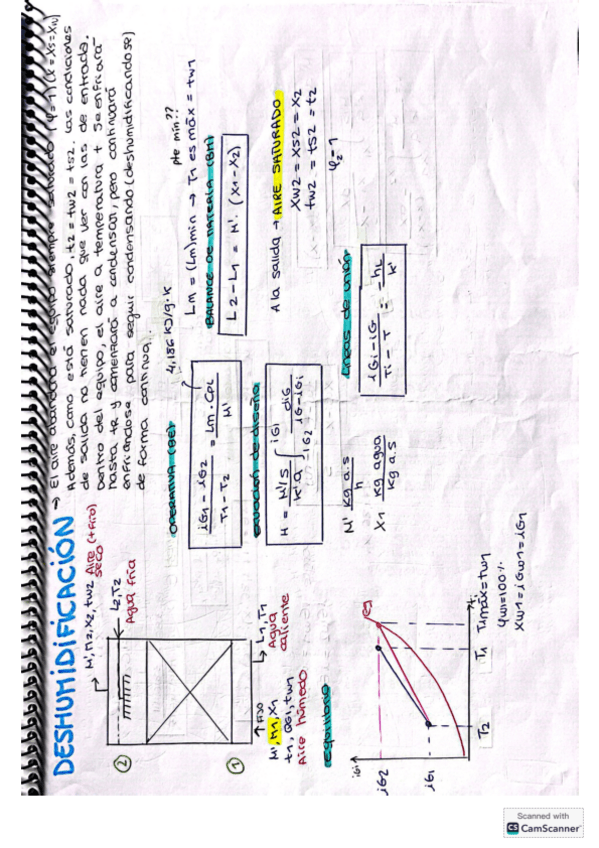 DESHUMIDIFICACIÓN → El aire abandona el equipo siempre saturado (φ=1) (X = Xs = Xw)
Además, como está saturado, t2 = tw2 = ts2. Las condiciones
de salida no tienen nada que ver con las de entrada.
Dentro del equipo, el aire a temperatura t se enfriará
hasta tR y comenzará a condensar, pero continuará
enfriándose para seguir condensando (deshumidificándose)
de forma continua.
M', M2, X2, tw2 Aire (+frío)
seco
L2, T2
Agua fría
②
①
↑ Frío
M, M1, X1
t1, iG1, tw1
Aire húmedo
L1, T1
Agua
caliente
OPERATIVA (BE)
4,186 kJ/g·K
iG1 - iG2 / T1 - T2 = Lm · CpL / M'
pte mín??
Lm = (Lm)mín → T1 es máx = tw1
BALANCE DE MATERIA (BM)
L2 - L1 = M' · (X1 - X2)
Ecuación de diseño
H = M'/S / k'a ∫ iG2 iG1 diG / iG - iGi
A la salida → AIRE SATURADO
Xw2 = Xs2 = X2
tw2 = ts2 = t2
φ2 = 1
M' kg a.s / h
X1 kg agua / kg a.s
Líneas de unión
iGi - iG / Ti - T = -hL / k'
equilibrio
iGi
iG2
iG1
eq
T2
T1
T1máx = tw1
Ti
φw1 = 100%
Xw1 = iGw1 = iG1
Scanned with
CS CamScanner